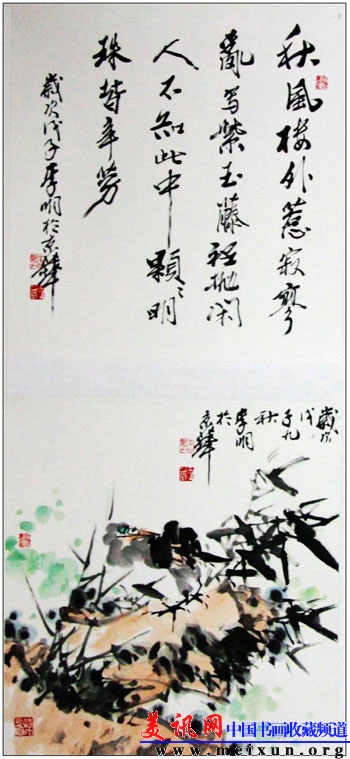 秋風樓外惹寂寥
亂寫紫玉藤拋閑
人不知此中顆〻明
珠皆辛勞
歲次戊子李明於京華
歲次
戊子九
秋李明
於
京華
美讯网 中国书画收藏频道
www.meixun.org